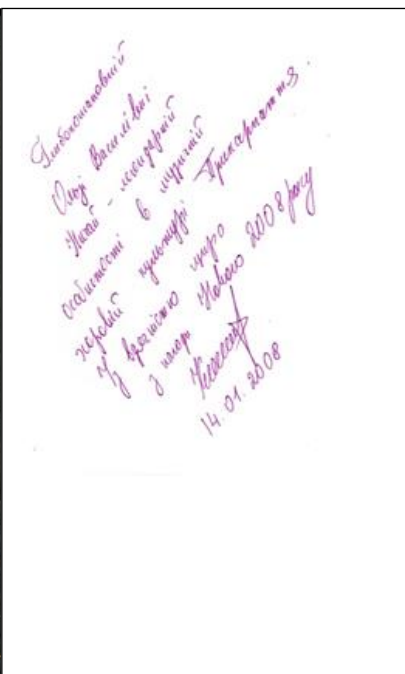 Глибокошановній
Ользі Василівні
Ничай - легендарній
особистості в музичній
хоровій культурі Прикарпаття.
З вдячністю щиро
з нагоди Нового 2008 року
14.01.2008